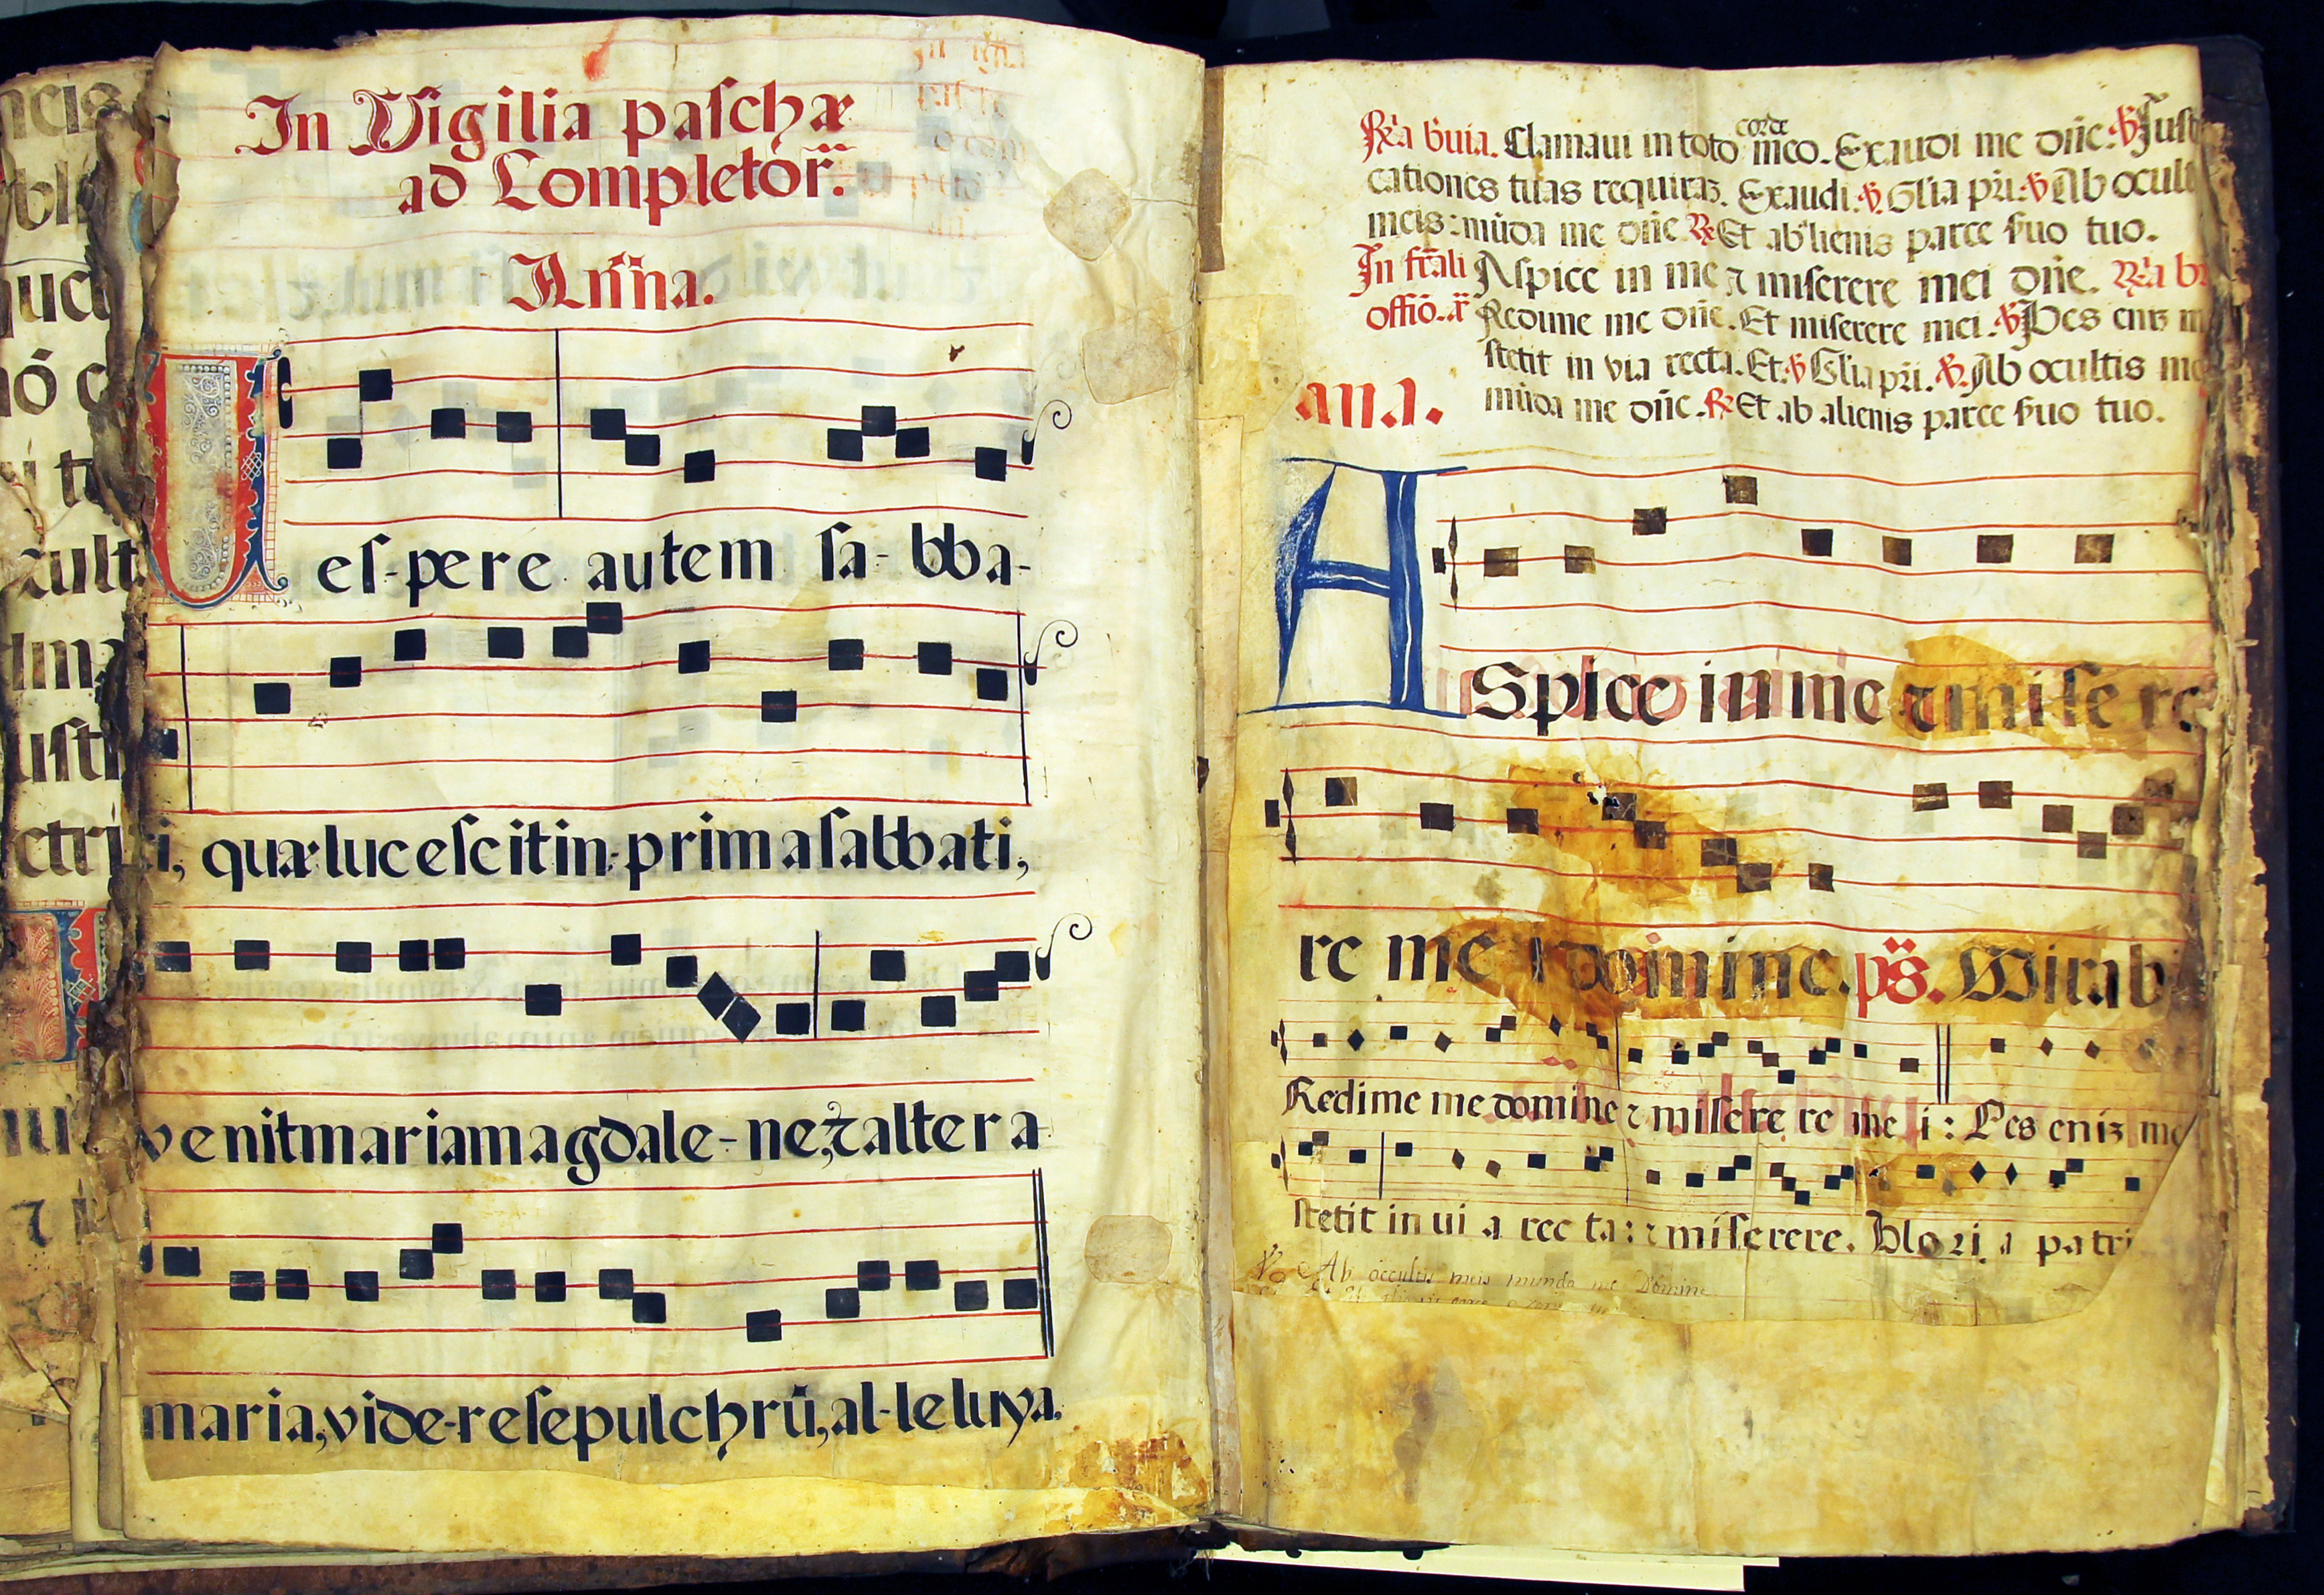 In Vigilia paschæ
ad Completor̃.
Añna.
Veſ-pere autem ſa-bba-
ti, quæ luceſcit in prima ſabbati,
venit maria magdale-ne, ⁊ altera
maria, vide-re ſepulchrū, al-leluya.
Clamaui in toto corde meo. Exaudi me dñe. ℣ Juſti
cationes tuas requirā. Exaudi. ℣. Glia pr̄i. ℣ Ab ocult
meis: mūda me dñe ℞ Et ab alienis parce ſuo tuo.
Aſpice in me ⁊ miſerere mei dñe.
offiō. Redime me dñe. Et miſerere mei. ℣ Pes
ſtetit in via recta. Et. ℣ Glia pr̄i. ℣. Ab ocultis
ana. mūda me dñe. ℞ Et ab alienis parce ſuo tuo.
ASpice in me ⁊ miſere
re me i domine. ps̄. Mirab
Redime me domine ⁊ miſere re me i: Pes eniz me
ſtetit in ui a rec ta: ⁊ miſerere. Glori a patri
Ab occultis meis munda me Domine